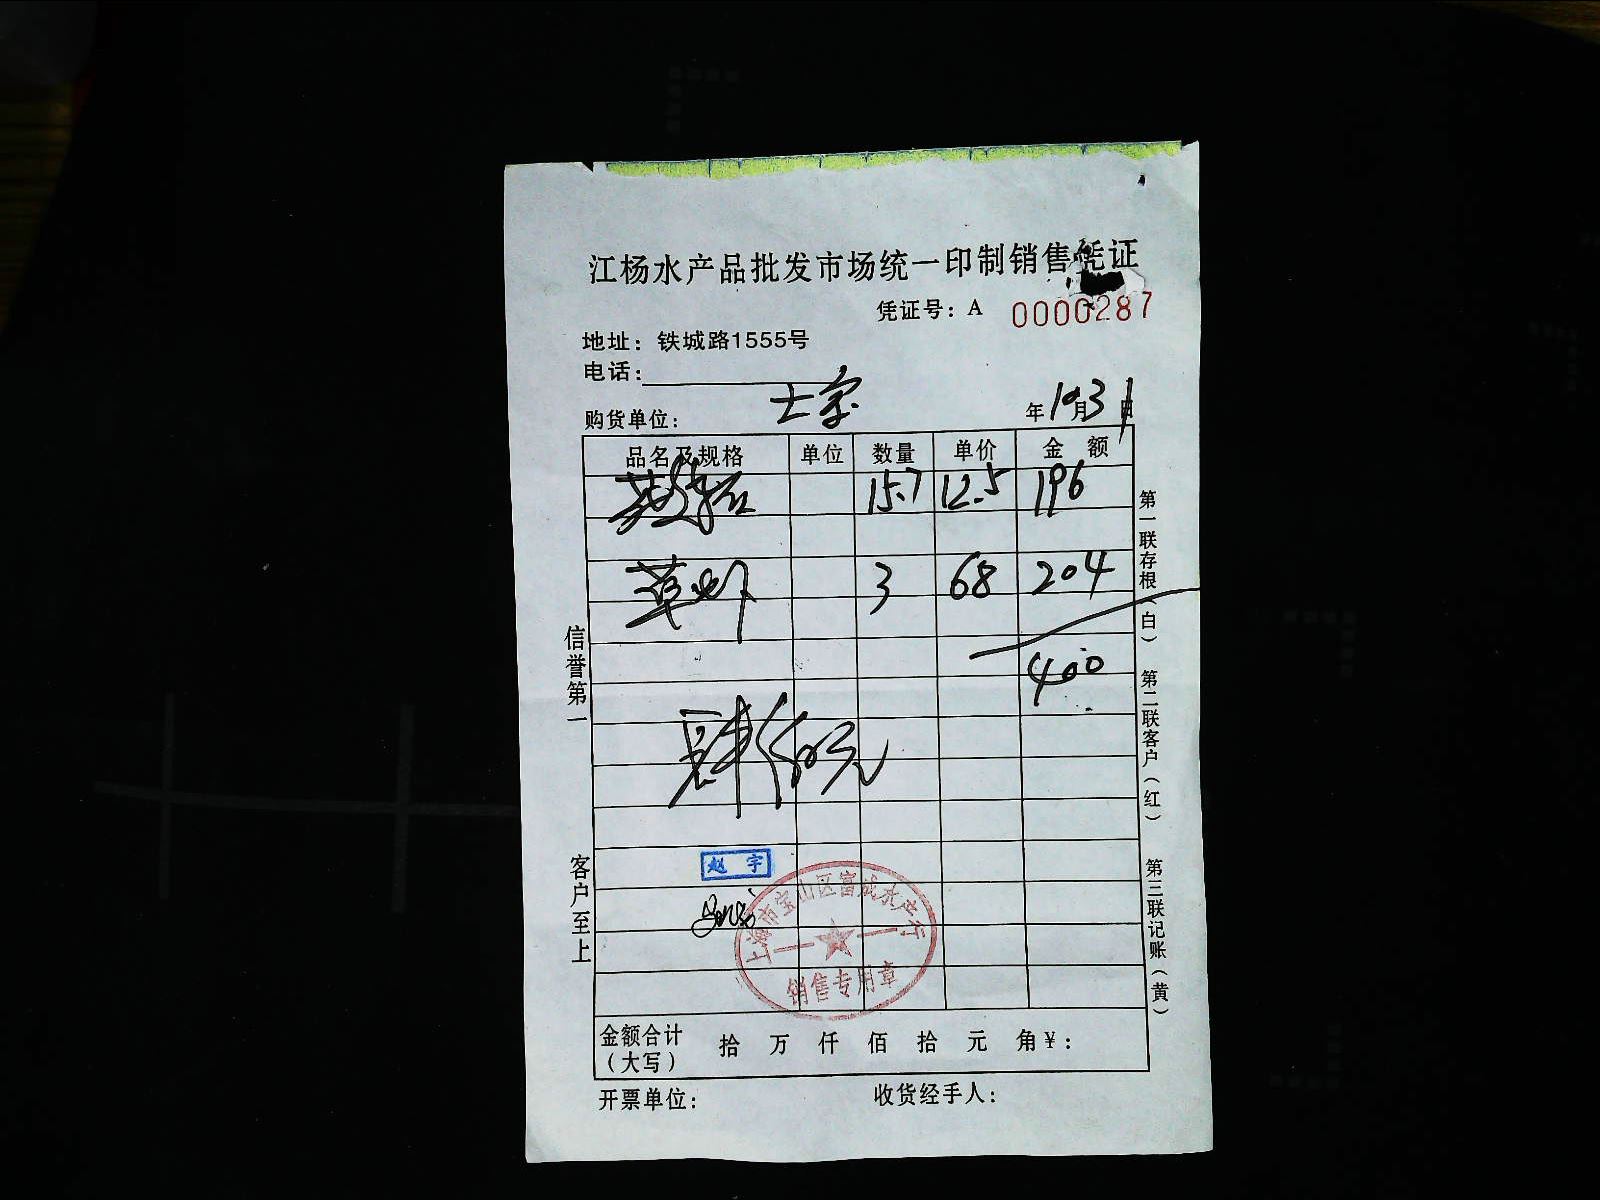 江杨水产品批发市场统一印制销售凭证
凭证号：A 0000287
地址：铁城路1555号
电话：
购货单位： 年10月31日
品名及规格 单位 数量 单价 金 额
15.7 12.5 196
草虾 3 68 204
400
肆佰元
赵宇
上海市宝山区富成水产行
销售专用章
金额合计（大写） 拾 万 仟 佰 拾 元 角￥：
开票单位： 收货经手人：
信誉第一 客户至上
第一联存根（白） 第二联客户（红） 第三联记账（黄）